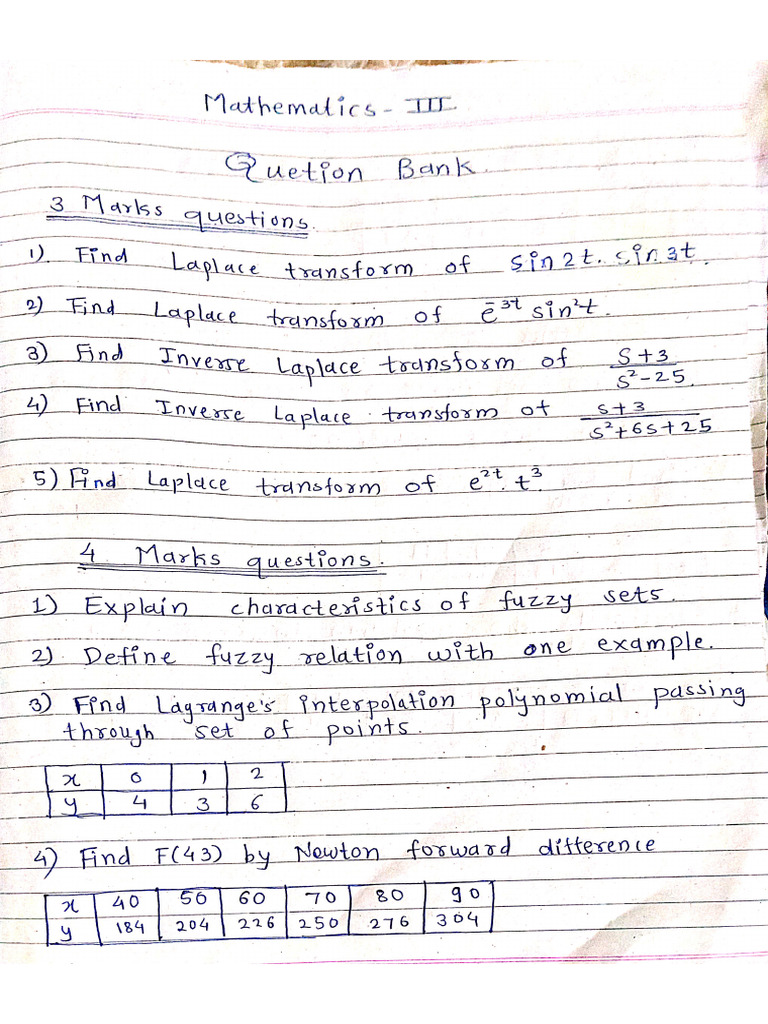 Mathematics - III
Quetion Bank.
3 Marks questions.
1) Find Laplace transform of sin2t. sin3t.
2) Find Laplace transform of e^-3t sin²t.
3) Find Inverse Laplace transform of S+3 / S²-25.
4) Find Inverse Laplace transform of s+3 / s²+6s+25
5) Find Laplace transform of e^2t. t³.
4 Marks questions.
1) Explain characteristics of fuzzy sets.
2) Define fuzzy relation with one example.
3) Find Lagrange's interpolation polynomial passing
through set of points.
x 0 1 2
y 4 3 6
4) Find F(43) by Newton forward difference
x 40 50 60 70 80 90
y 184 204 226 250 276 304